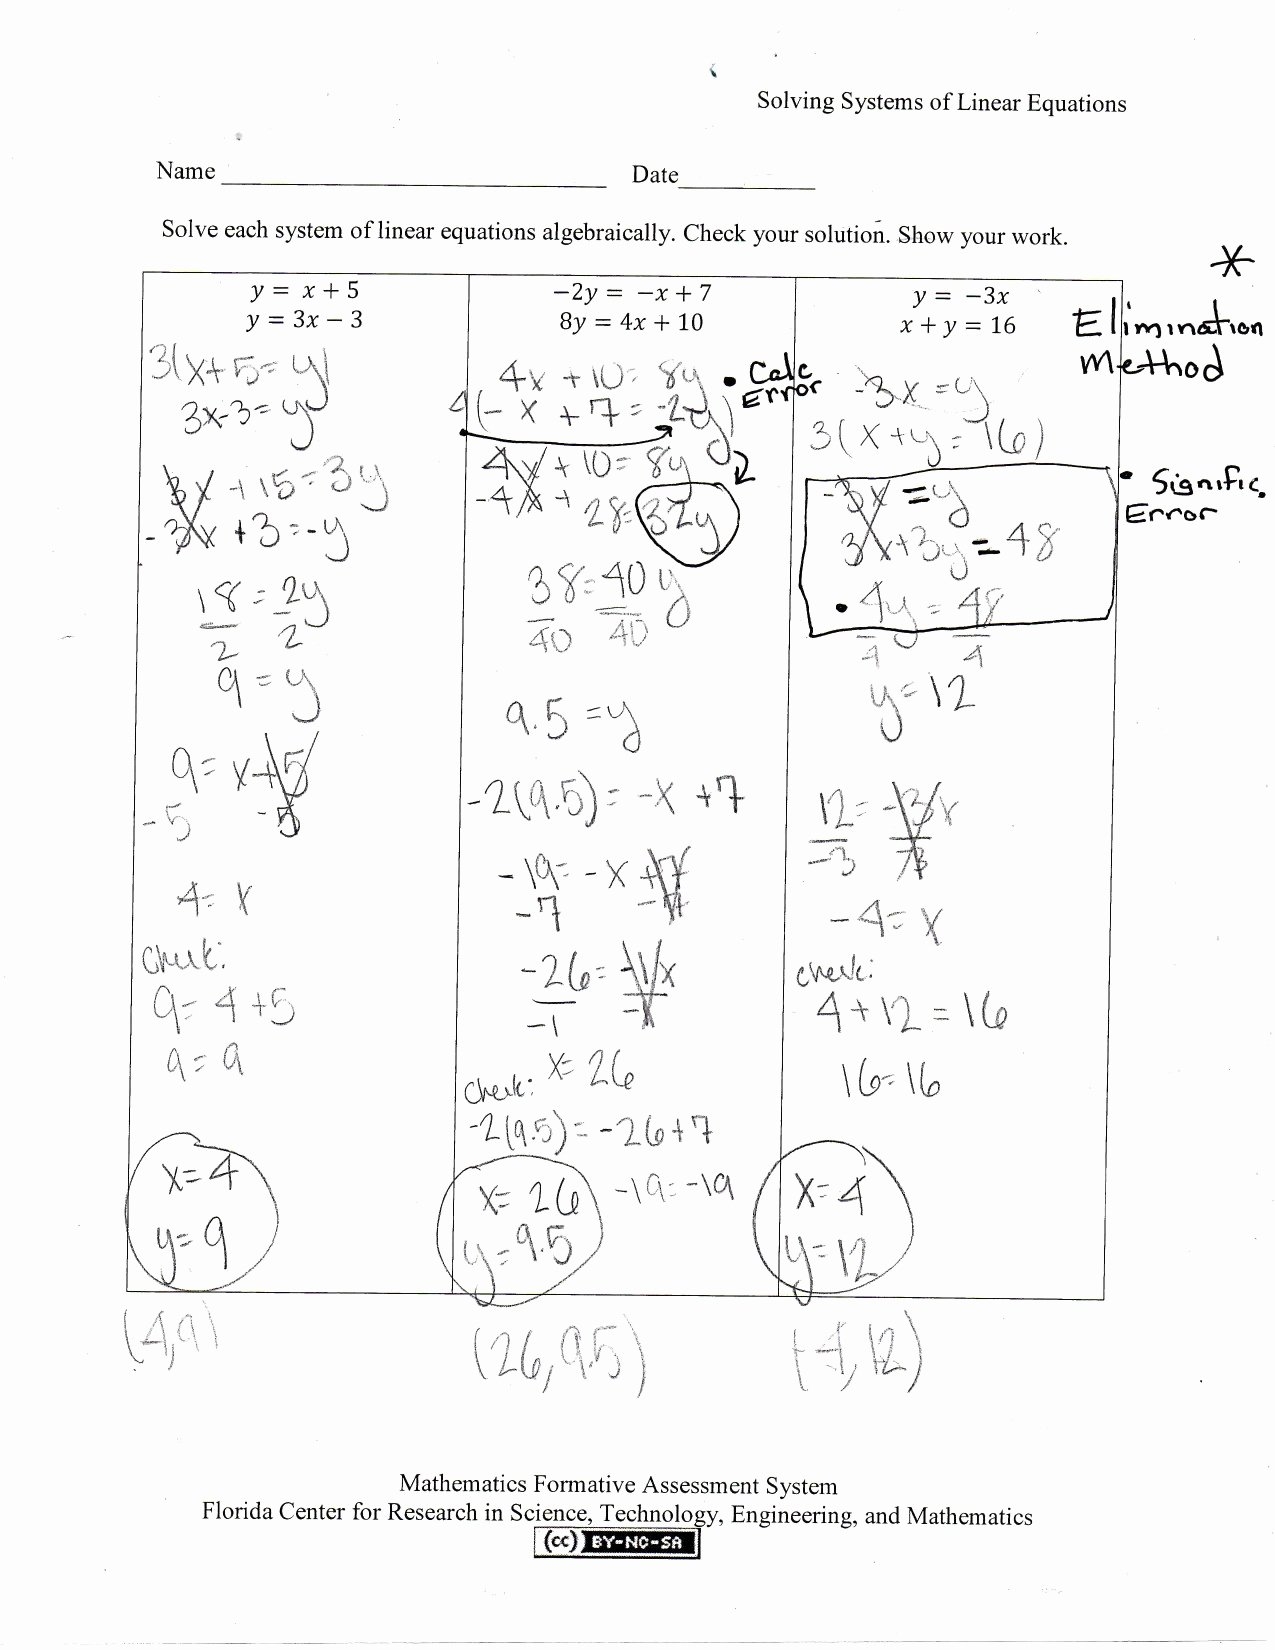 Solving Systems of Linear Equations
Name
Date
Solve each system of linear equations algebraically. Check your solution. Show your work.
y = x + 5
y = 3x − 3
3(x+5=y)
3x-3=y
3x+15=3y
-3x+3=-y
18=2y
2 2
9=y
9=x+5
-5 -5
4=x
Check:
9=4+5
9=9
x=4
y=9
(4,9)
−2y = −x + 7
8y = 4x + 10
4x+10=8y
4(-x+7=-2y)
• Calc
Error
4x+10=8y
-4x+28=32y
38=40y
40 40
9.5=y
-2(9.5)=-x+7
-19=-x+7
-7 -7
-26=-1x
-1 -1
x=26
Check:
-2(9.5)=-26+7
-19=-19
x=26
y=9.5
(26,9.5)
y = −3x
x + y = 16
* Elimination
Method
-3x=y
3(x+y=16)
-3x=y
3x+3y=48
• 4y=48
4 4
• Signific.
Error
y=12
12=-3x
-3 -3
-4=x
check:
4+12=16
16=16
x=4
y=12
(-4,12)
Mathematics Formative Assessment System
Florida Center for Research in Science, Technology, Engineering, and Mathematics
(cc) BY-NC-SA